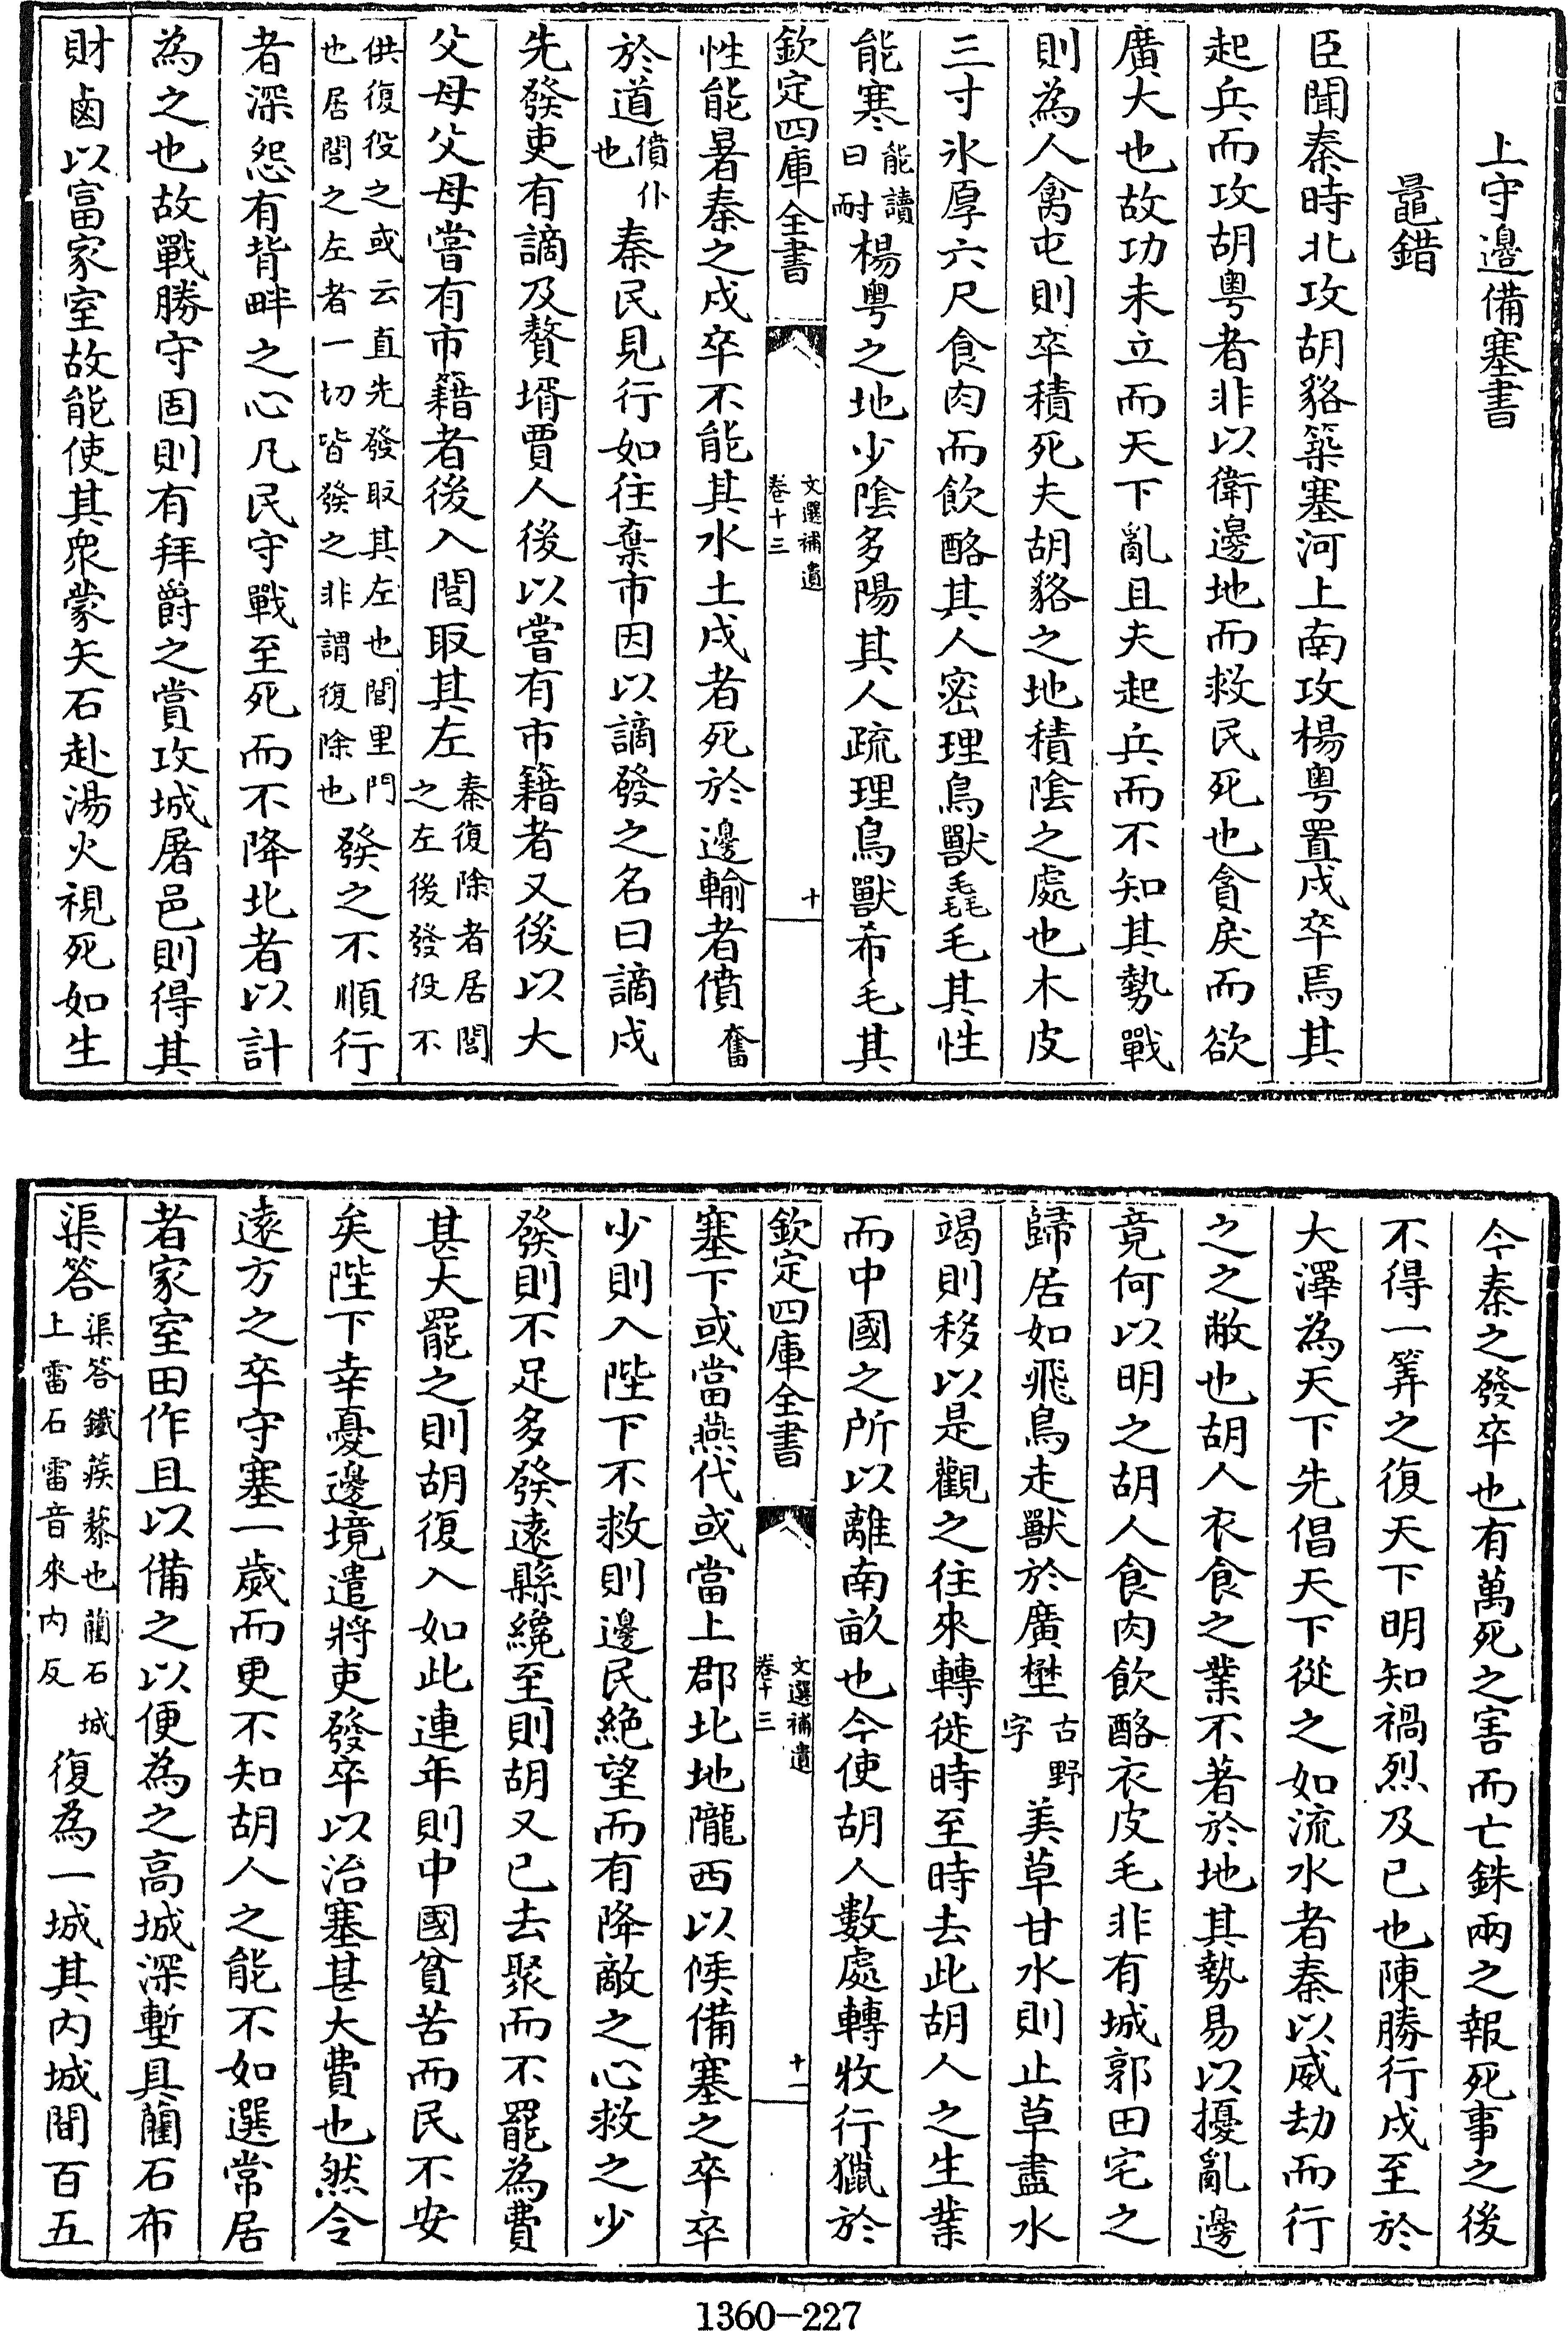 上守邊備塞書
鼂錯
臣聞秦時北攻胡貉築塞河上南攻楊粤置戍卒焉其
起兵而攻胡粤者非以衛邊地而救民死也貪戾而欲
廣大也故功未立而天下亂且夫起兵而不知其勢戰
則為人禽屯則卒積死夫胡貉之地積隂之處也木皮
三寸氷厚六尺食肉而飲酪其人密理鳥獸毳毛其性
能寒能讀曰耐楊粤之地少隂多陽其人疏理鳥獸希毛其
欽定四庫全書
文選補遺
卷十三
十
性能暑秦之戍卒不能其水土戍者死於邊輸者僨奮
於道僨仆也秦民見行如往棄市因以謫發之名曰謫戍
先發吏有謫及贅壻賈人後以嘗有市籍者又後以大
父母父母嘗有市籍者後入閭取其左秦復除者居閭之左後發役不
供復役之或云直先發取其左也閭里門也居閭之左者一切皆發之非謂復除也發之不順行
者深怨有背畔之心凡民守戰至死而不降北者以計
為之也故戰勝守固則有拜爵之賞攻城屠邑則得其
財鹵以富家室故能使其衆蒙矢石赴湯火視死如生
今秦之發卒也有萬死之害而亡銖兩之報死事之後
不得一筭之復天下明知禍烈及已也陳勝行戍至於
大澤為天下先倡天下從之如流水者秦以威劫而行
之之敝也胡人衣食之業不著於地其勢易以擾亂邊
竟何以明之胡人食肉飲酪衣皮毛非有城郭田宅之
歸居如飛鳥走獸於廣壄古野字美草甘水則止草盡水
竭則移以是觀之往來轉徙時至時去此胡人之生業
而中國之所以離南畝也今使胡人數處轉牧行獵於
欽定四庫全書
文選補遺
卷十三
十一
塞下或當燕代或當上郡北地隴西以候備塞之卒卒
少則入陛下不救則邊民絶望而有降敵之心救之少
發則不足多發逺縣纔至則胡又已去聚而不罷為費
甚大罷之則胡復入如此連年則中國貧苦而民不安
矣陛下幸憂邊境遣將吏發卒以治塞甚大費也然令
逺方之卒守塞一歲而更不知胡人之能不如選常居
者家室田作且以備之以便為之高城深塹具藺石布
渠答渠答鐵蒺藜也藺石城上雷石雷音來内反復為一城其内城間百五
1360-227